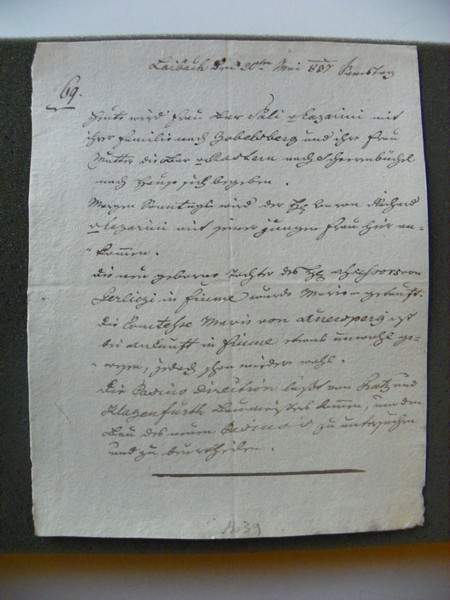 Laibach den 20ten Mai 837 Samstag
69.
Heute wird Frau Bar Sali Lazarini mit
ihrer Familie nach Zobelsberg und ihre Frau
Mutter die Bar nach Scherrenbüchel
nach Hause sich begeben.
Morgen Sonntags wird der H Baron Richard
Lazarini mit seiner jungen Frau hier an-
kommen.
Die neu geborene Tochter des H
in Fiume wurde Marie getauft.
Die Comtesse Marie von Auersperg ist
bei Ankunft in Fiume etwas unwohl ge-
wesen, jedoch schon wieder wohl.
Die Casino Direction läßt von Gratz und
Klagenfurth Baumeister kommen, um den
Bau des neuen Casino's zu untersuchen
und zu beurtheilen.